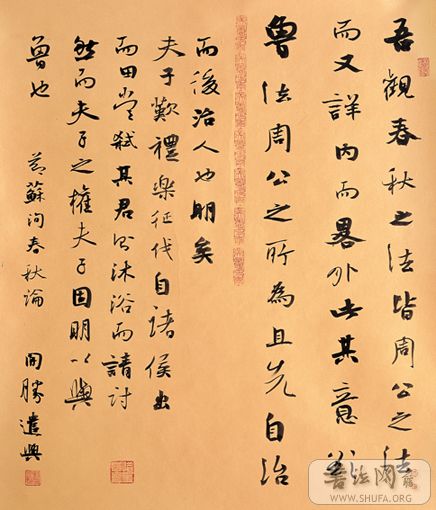 吾觀春秋之法皆周公之法
而又詳內而畧外此其意欲
魯法周公之所為且先自治
而後治人也明矣
夫子歎禮樂征伐自諸侯出
而田常弒其君則沐浴而請討
然而夫子之權夫子固明以與
魯也 節蘇洵春秋論 開勝遣興
書法网
WWW.SHUFA.ORG